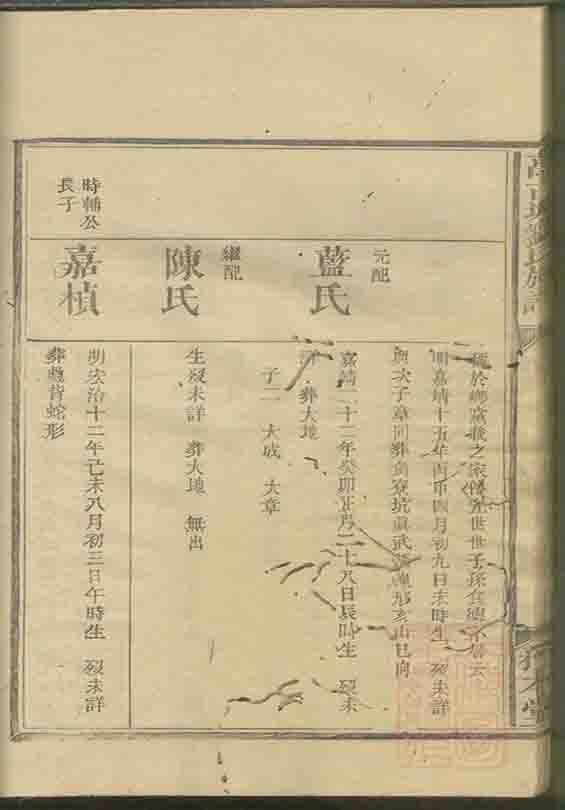 於鄉黨載之家傳先世世子孫食德不替云
明嘉靖十五年丙申四月初九日未時生 歿未詳
與次子章同葬黃竂坑真武形亥山巳向
元配
藍氏
嘉靖二十二年癸卯正月二十八日辰時生 歿未
詳 葬大地
子二 大成 大章
繼配
陳氏
生歿未詳 葬大地 無出
時輔公
長子
嘉楨
明宏治十二年己未八月初三日午時生 歿未詳
葬彎背蛇形
劉氏族譜